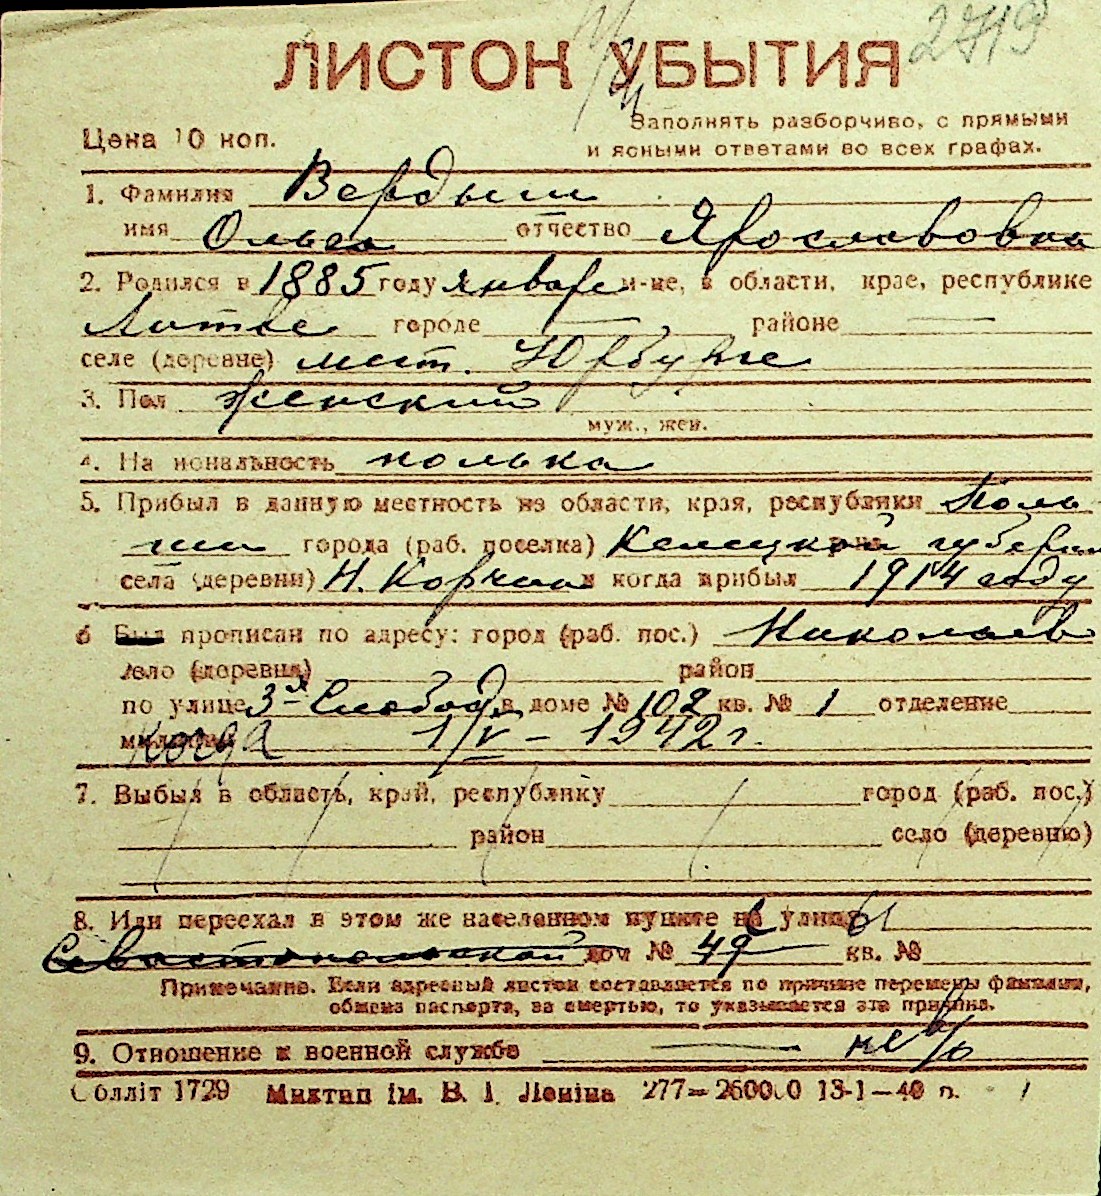 2719
ЛИСТОК УБЫТИЯ
Цена 10 коп.
Заполнять разборчиво, с прямыми
и ясными ответами во всех графах.
1. Фамилия Вердыш
имя Ольга отчество Ярославовна
2. Родился в 1885 году январе м-це, в области, крае, республике
Литве городе — , районе —
селе (деревне) мест. Юрбурге
3. Пол женский
муж., жен.
4. Национальность полька
5. Прибыл в данную местность из области, края, республики Поль-
ши города (раб. поселка) Келецкой губернии
села (деревни) Н. Корчин и когда прибыл 1914 году
6 Был прописан по адресу: город (раб. пос.) Николаев
село (деревня) район
по улице 3-я Слободс в доме № 102 кв. № 1 отделение
милиции когда 1/V – 1942 г.
7. Выбыл в область, край, республику город (раб. пос.)
район село (деревню)
8. Или переехал в этом же населенном пункте на улицу
Севастопольской дом № 49 кв. №
Примечание. Если адресный листок составляется по причине перемены фамилии,
обмена паспорта, за смертью, то указывается эта причина.
9. Отношение к военной службе — не в/о
Облліт 1729 Миктип ім. В. І. Леніна 277—260000 13-1—40 р.